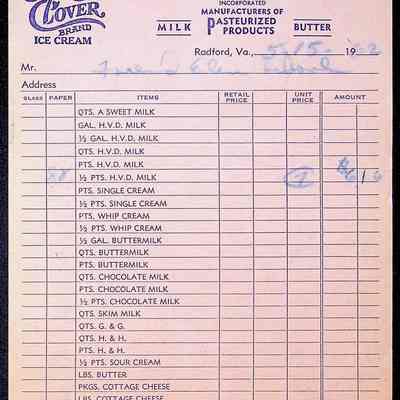 CLOVER
BRAND
ICE CREAM
INCORPORATED
MANUFACTURERS OF
MILK PASTEURIZED PRODUCTS BUTTER
Radford, Va., 19
Mr.
Address
GLASS PAPER ITEMS RETAIL PRICE UNIT PRICE AMOUNT
QTS. A SWEET MILK
GAL. H.V.D. MILK
½ GAL. H.V.D. MILK
QTS. H.V.D. MILK
PTS. H.V.D. MILK
½ PTS. H.V.D. MILK
PTS. SINGLE CREAM
½ PTS. SINGLE CREAM
PTS. WHIP CREAM
½ PTS. WHIP CREAM
½ GAL. BUTTERMILK
QTS. BUTTERMILK
PTS. BUTTERMILK
QTS. CHOCOLATE MILK
PTS. CHOCOLATE MILK
½ PTS. CHOCOLATE MILK
QTS. SKIM MILK
QTS. G. & G.
QTS. H. & H.
PTS. H. & H.
½ PTS. SOUR CREAM
LBS. BUTTER
PKGS. COTTAGE CHEESE
LBS. COTTAGE CHEESE